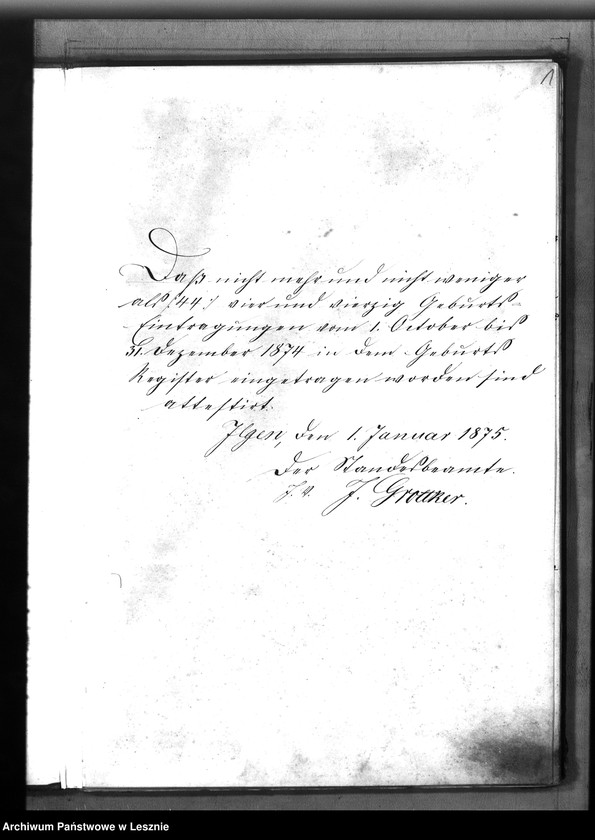 1
Daß nicht mehr und nicht weniger
als /:44:/ vier und vierzig Geburts-
Eintragungen vom 1. October bis
31. Dezember 1874 in dem Geburts
Register eingetragen worden sind
attestirt.
Ilgen, den 1. Januar 1875.
Der Standesbeamte.
J. V. J. Grottker.
Archiwum Państwowe w Lesznie